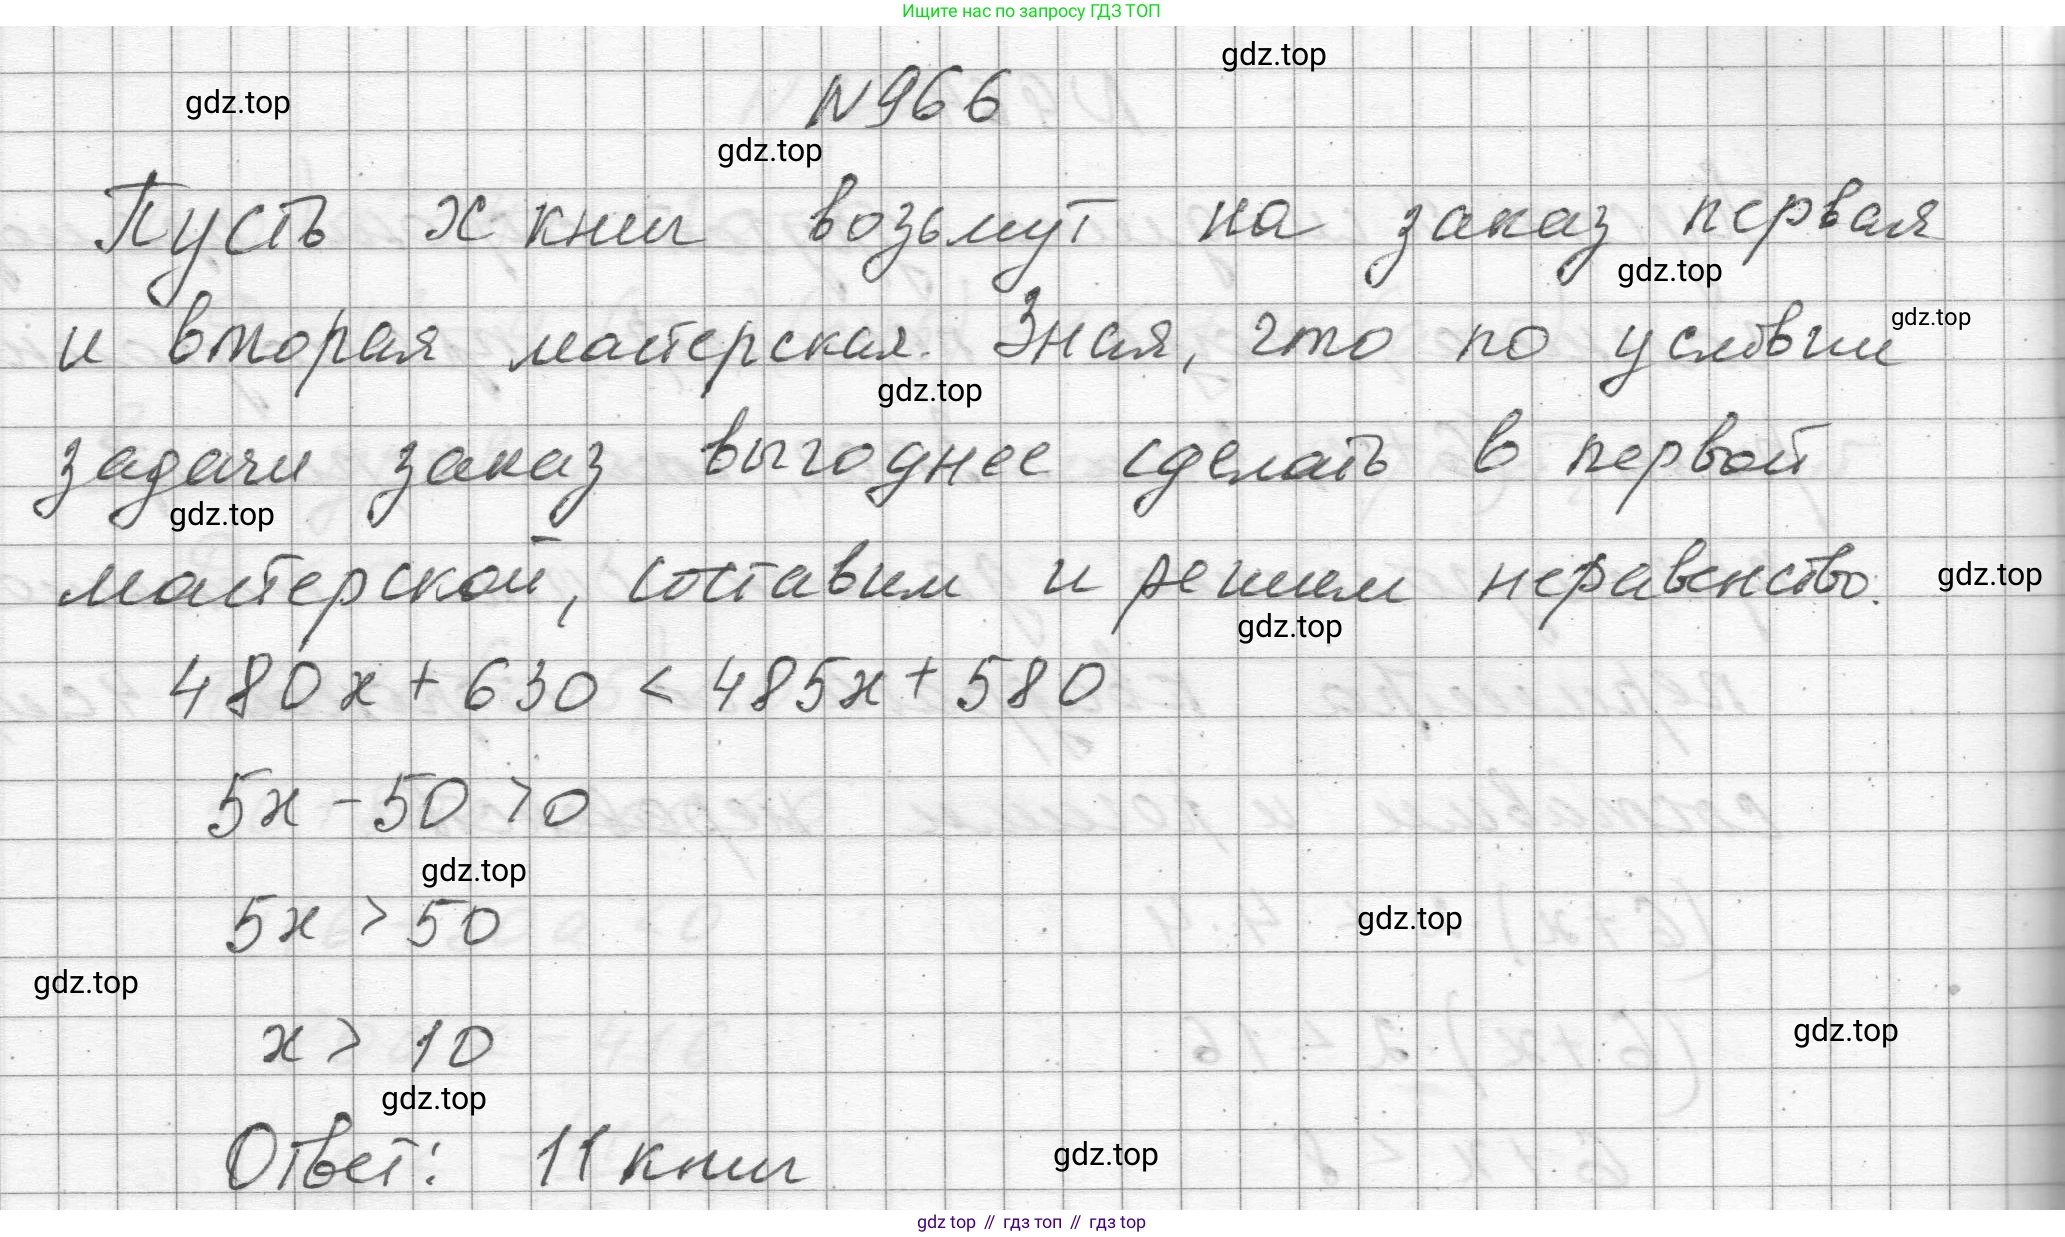 Ищите нас по запросу ГДЗ ТОП
gdz.top
gdz.top
№966
gdz.top
Пусть x книг возьмут на заказ первая
gdz.top
и вторая мастерская. Зная, что по условии
gdz.top
gdz.top
задачи заказ выгоднее сделать в первой
gdz.top
мастерской, составим и решим неравенство:
gdz.top
gdz.top
480x + 630 < 485x + 580
5x - 50 > 0
gdz.top
5x > 50
gdz.top
gdz.top
x > 10
gdz.top
gdz.top
Ответ: 11 книг
gdz.top
gdz top // гдз топ // гдз top